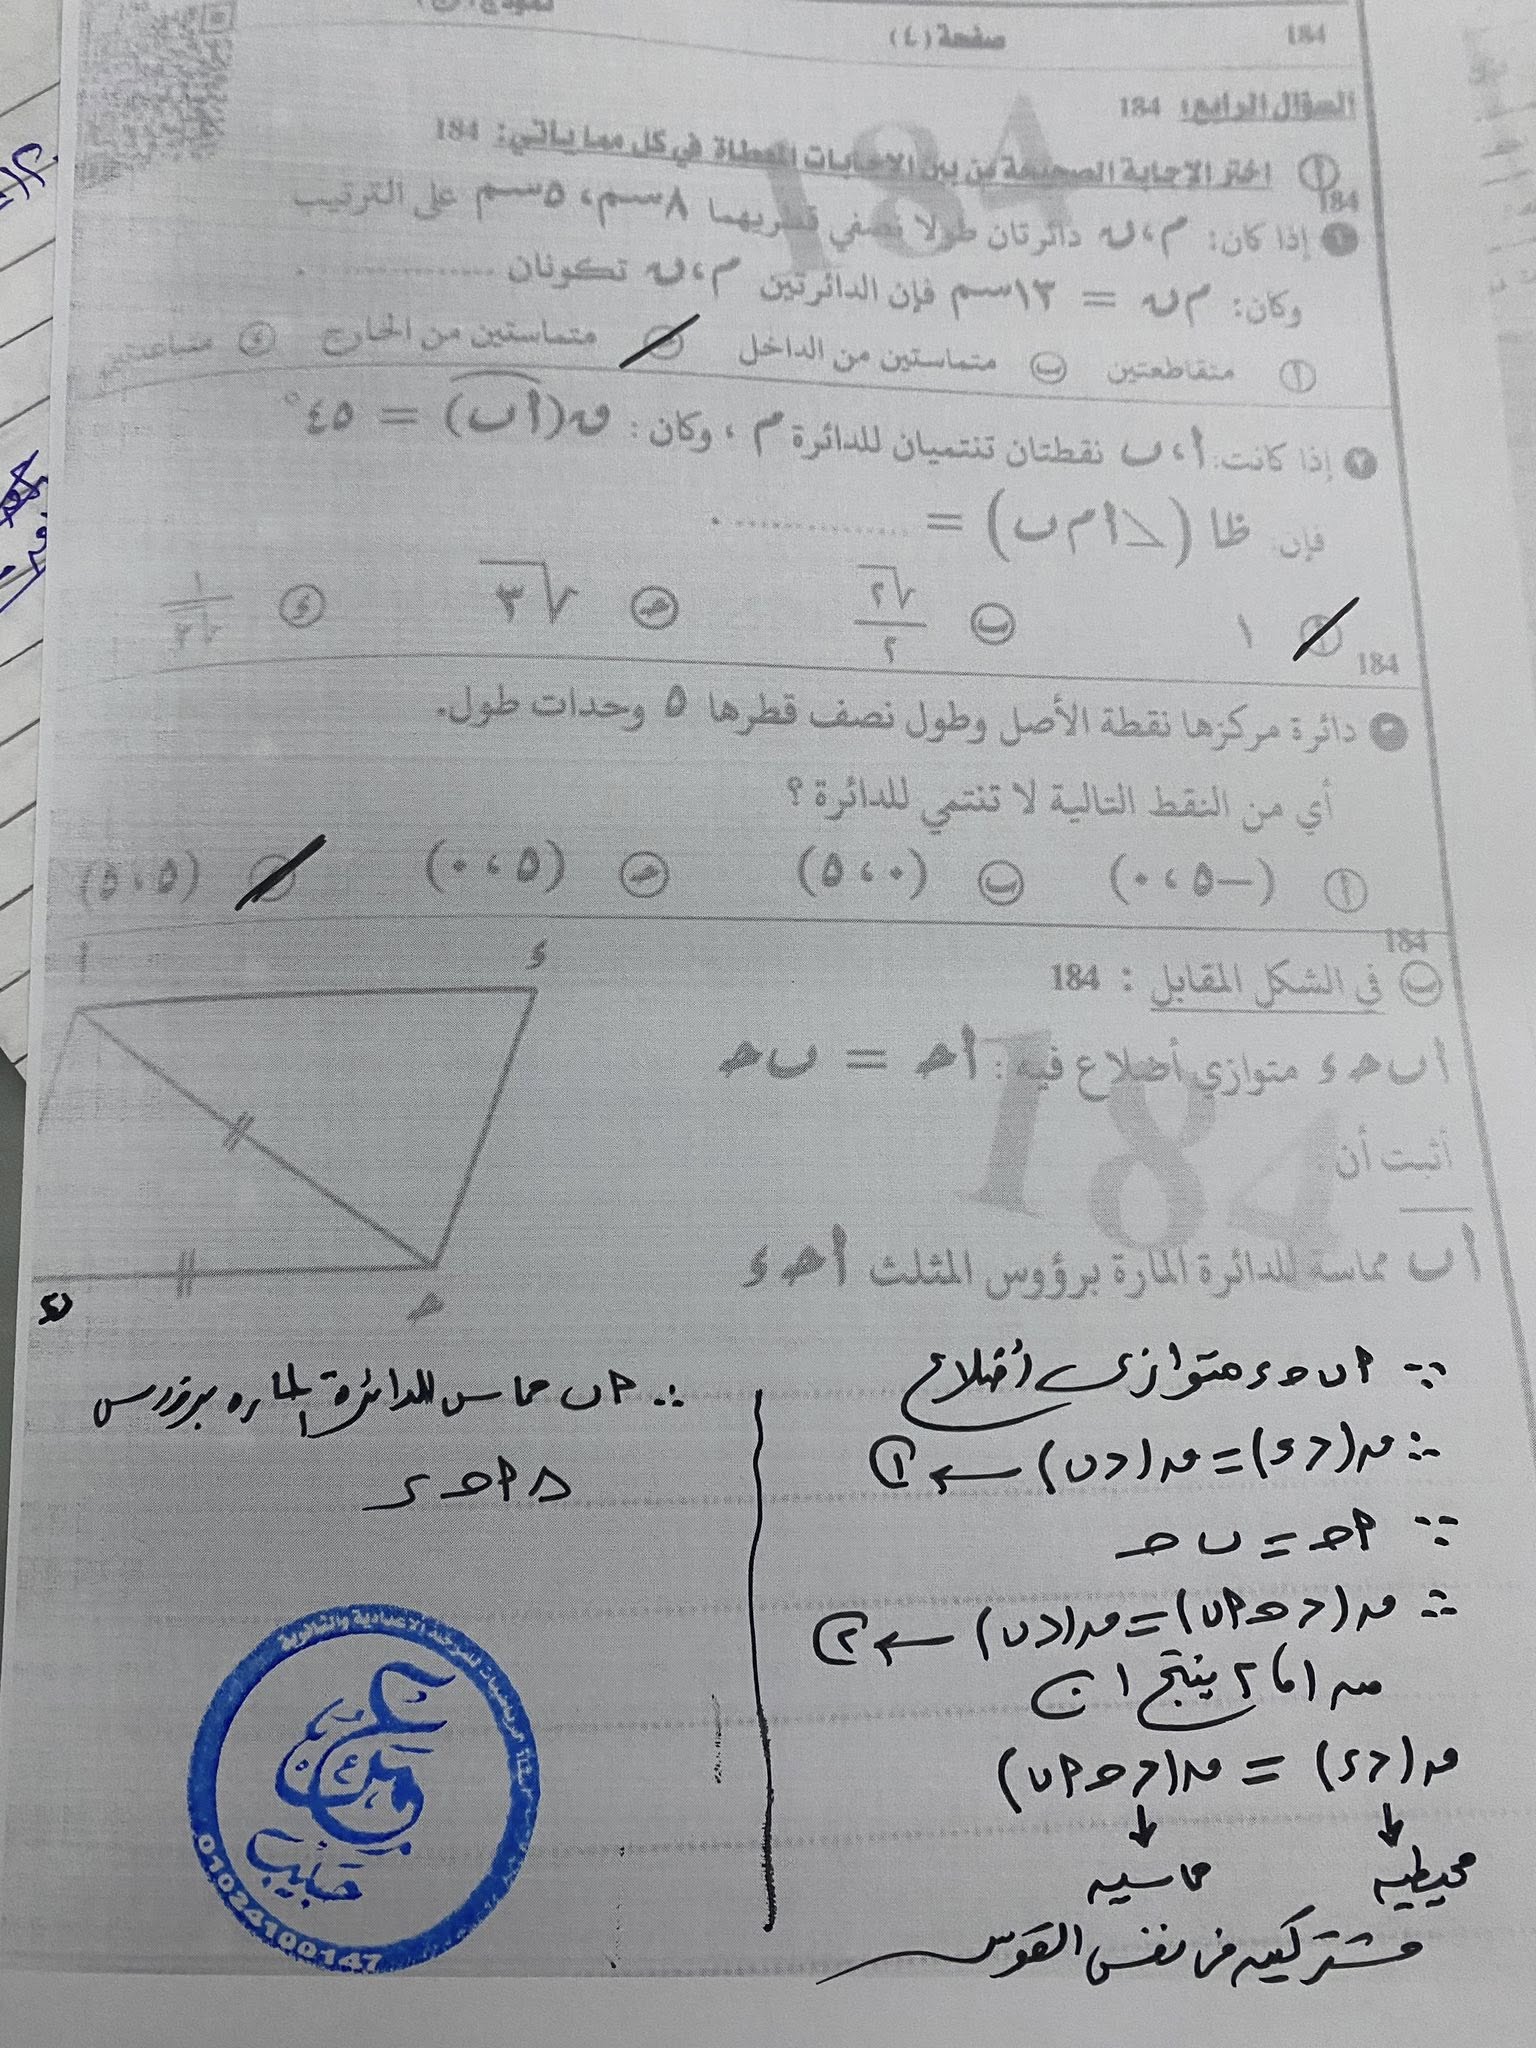 صفحة (٤)
184
السؤال الرابع: 184
أ اختر الإجابة الصحيحة من بين الإجابات المعطاة في كل مما يأتي: 184
184
١ إذا كان: م، ن دائرتان طولا نصفي قطريهما ٨سم، ٥سم على الترتيب
وكان: م ن = ١٣سم فإن الدائرتين م، ن تكونان ............ .
أ متقاطعتين ب متماستين من الداخل ج متماستين من الخارج ء متباعدتين
٢ إذا كانت: أ، ب نقطتان تنتميان للدائرة م، وكان: ق(أب) = ٤٥°
فإن: ظا (∠أ م ب) = ............ .
أ ١ ب √٢/٢ ج √٣ ء ١/√٢
184
٣ دائرة مركزها نقطة الأصل وطول نصف قطرها ٥ وحدات طول.
أي من النقط التالية لا تنتمي للدائرة ؟
أ (-٥، ٠) ب (٠، ٥) ج (٥، ٠) ء (٥، ٥)
184
ب في الشكل المقابل: 184
أ ب ج ء متوازي أضلاع فيه: أج = ب ج
أثبت أن:
أب مماسة للدائرة المارة برؤوس المثلث أ ج ء
أ
ء
ج
ب
∵ أ ب ج ء متوازى أضلاع
∴ ق(∠ء) = ق(∠ب) ← ①
∵ أج = ب ج
∴ ق(∠ج أ ب) = ق(∠ب) ← ②
من ١ ، ٢ ينتج ان
ق(∠ء) = ق(∠ج أ ب)
محيطيه مماسيه
مشتركين فى نفس القوس
∴ أب مماس للدائرة المارة برؤوس
△ أ ج ء
حبيب
01024100147